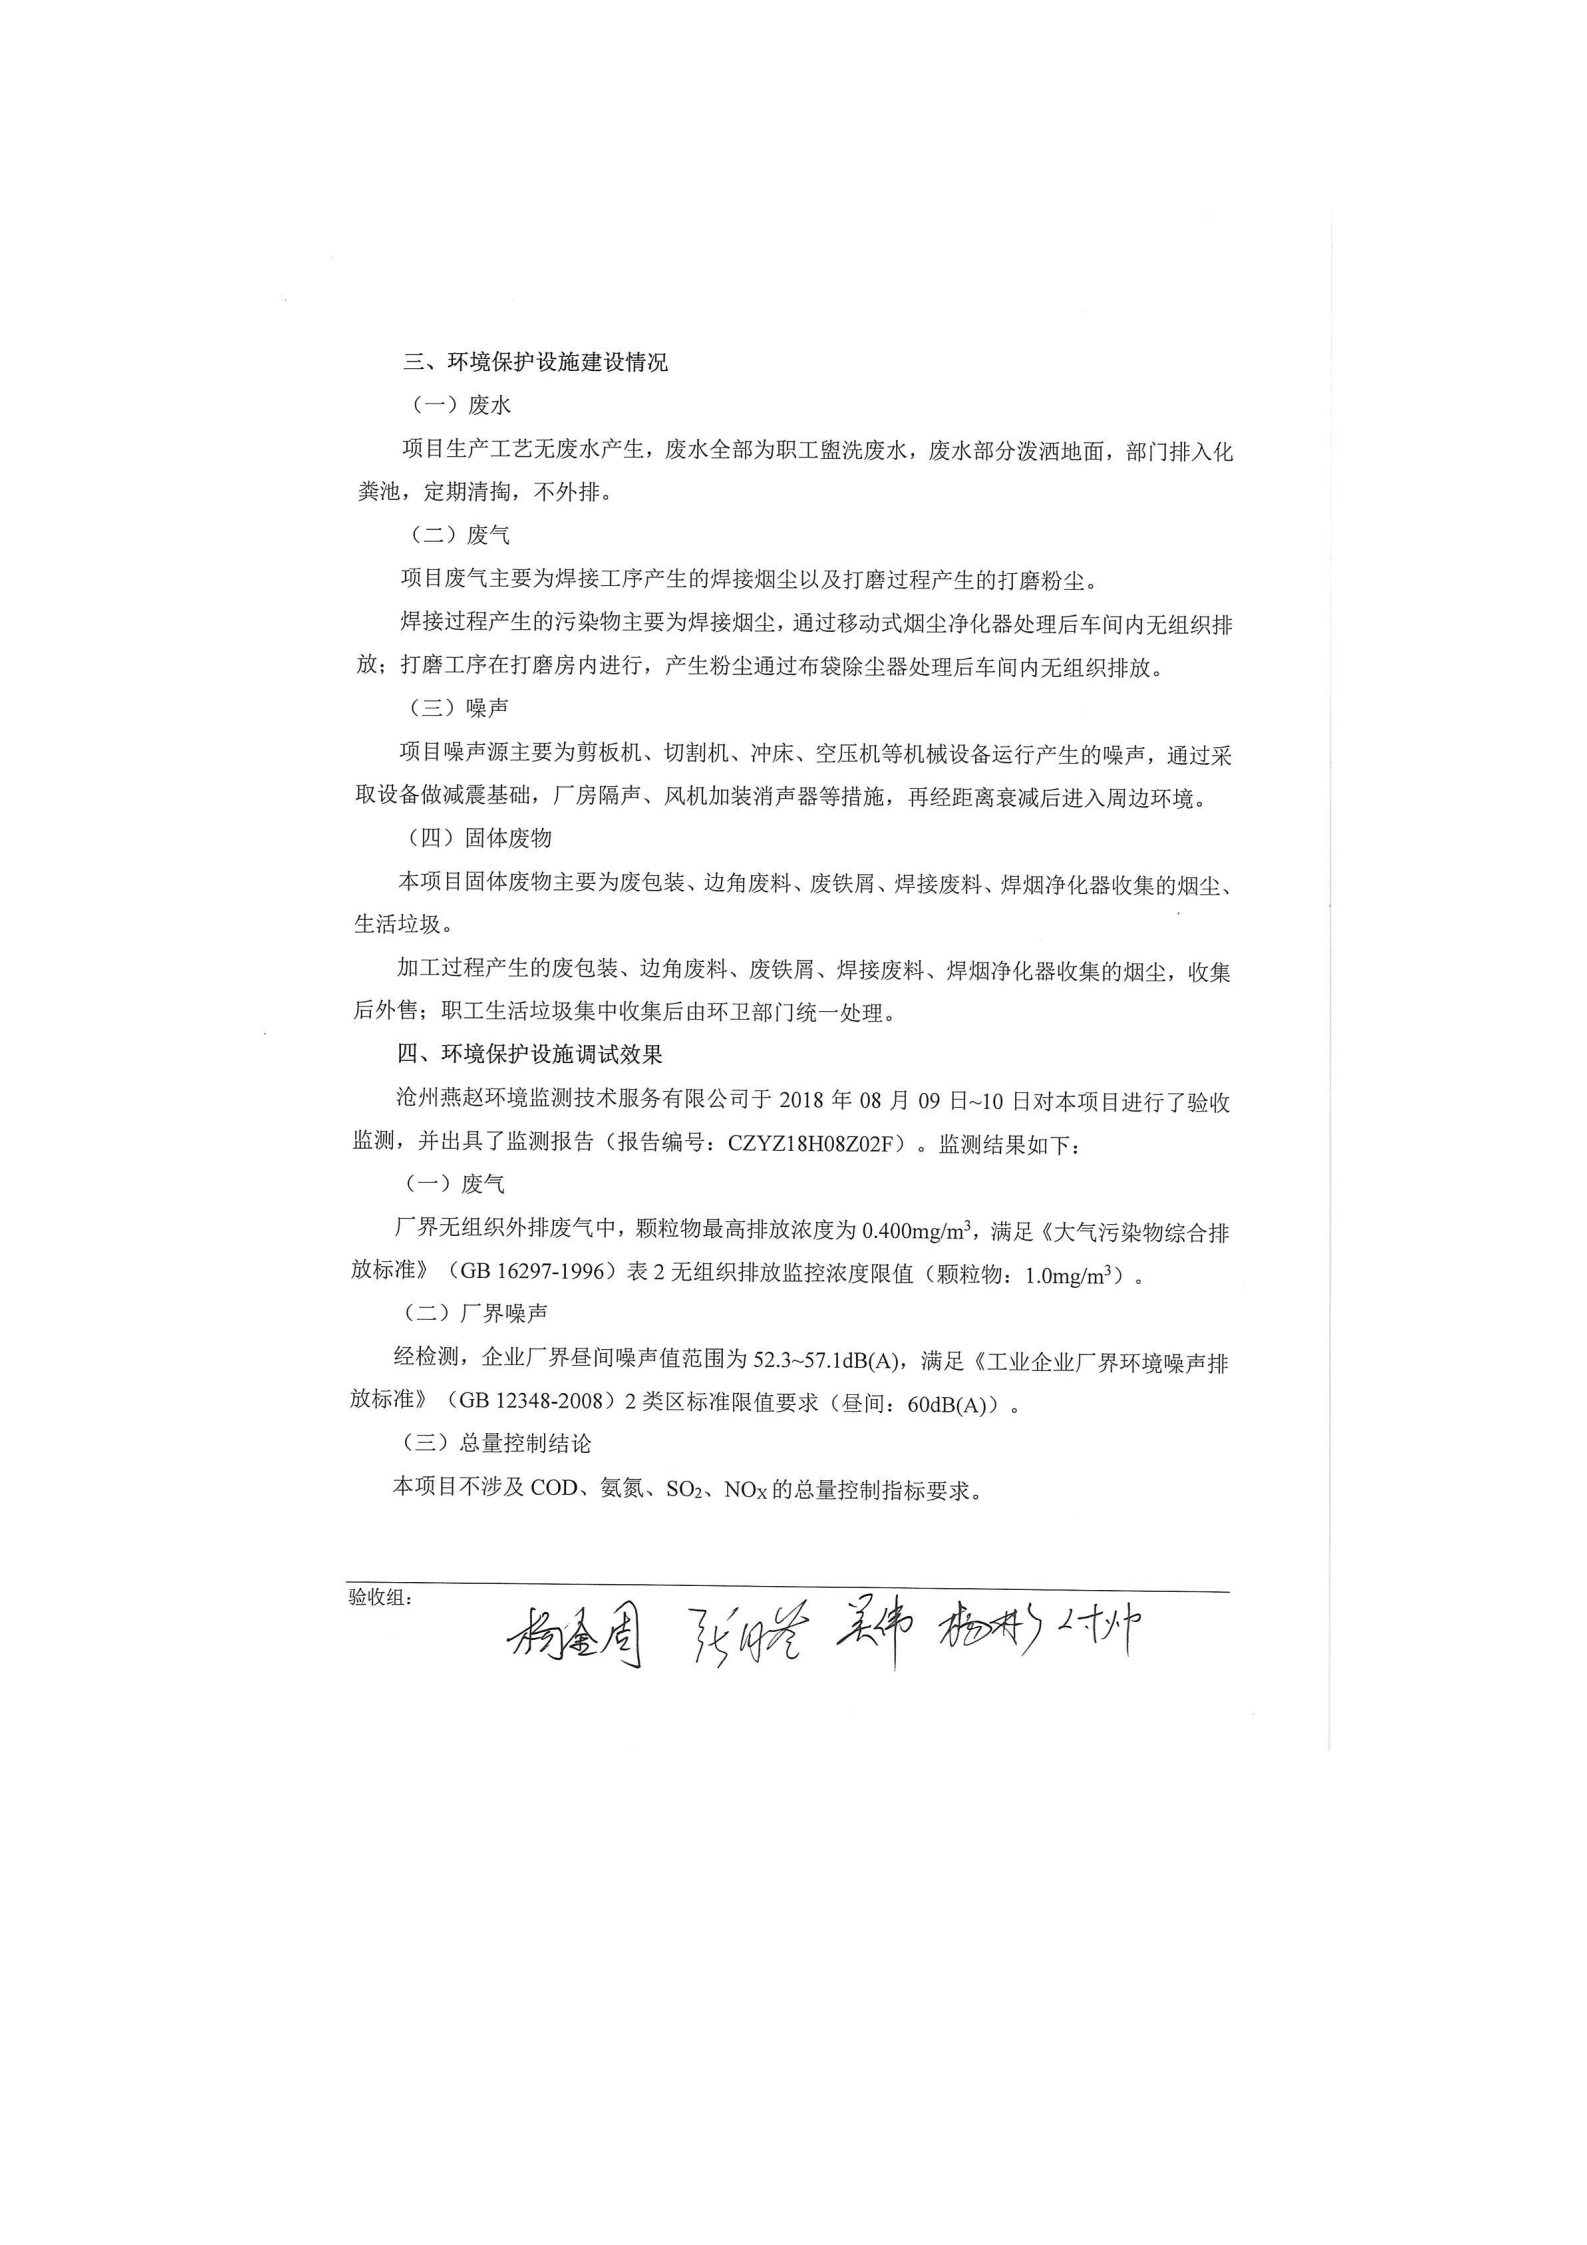 三、环境保护设施建设情况
（一）废水
项目生产工艺无废水产生，废水全部为职工盥洗废水，废水部分泼洒地面，部门排入化
粪池，定期清掏，不外排。
（二）废气
项目废气主要为焊接工序产生的焊接烟尘以及打磨过程产生的打磨粉尘。
焊接过程产生的污染物主要为焊接烟尘，通过移动式烟尘净化器处理后车间内无组织排
放；打磨工序在打磨房内进行，产生粉尘通过布袋除尘器处理后车间内无组织排放。
（三）噪声
项目噪声源主要为剪板机、切割机、冲床、空压机等机械设备运行产生的噪声，通过采
取设备做减震基础，厂房隔声、风机加装消声器等措施，再经距离衰减后进入周边环境。
（四）固体废物
本项目固体废物主要为废包装、边角废料、废铁屑、焊接废料、焊烟净化器收集的烟尘、
生活垃圾。
加工过程产生的废包装、边角废料、废铁屑、焊接废料、焊烟净化器收集的烟尘，收集
后外售；职工生活垃圾集中收集后由环卫部门统一处理。
四、环境保护设施调试效果
沧州燕赵环境监测技术服务有限公司于 2018 年 08 月 09 日~10 日对本项目进行了验收
监测，并出具了监测报告（报告编号：CZYZ18H08Z02F）。监测结果如下：
（一）废气
厂界无组织外排废气中，颗粒物最高排放浓度为 0.400mg/m³，满足《大气污染物综合排
放标准》（GB 16297-1996）表 2 无组织排放监控浓度限值（颗粒物：1.0mg/m³）。
（二）厂界噪声
经检测，企业厂界昼间噪声值范围为 52.3~57.1dB(A)，满足《工业企业厂界环境噪声排
放标准》（GB 12348-2008）2 类区标准限值要求（昼间：60dB(A)）。
（三）总量控制结论
本项目不涉及 COD、氨氮、SO₂、NOx 的总量控制指标要求。
验收组：
杨金周 吴伟 杨彬 付帅